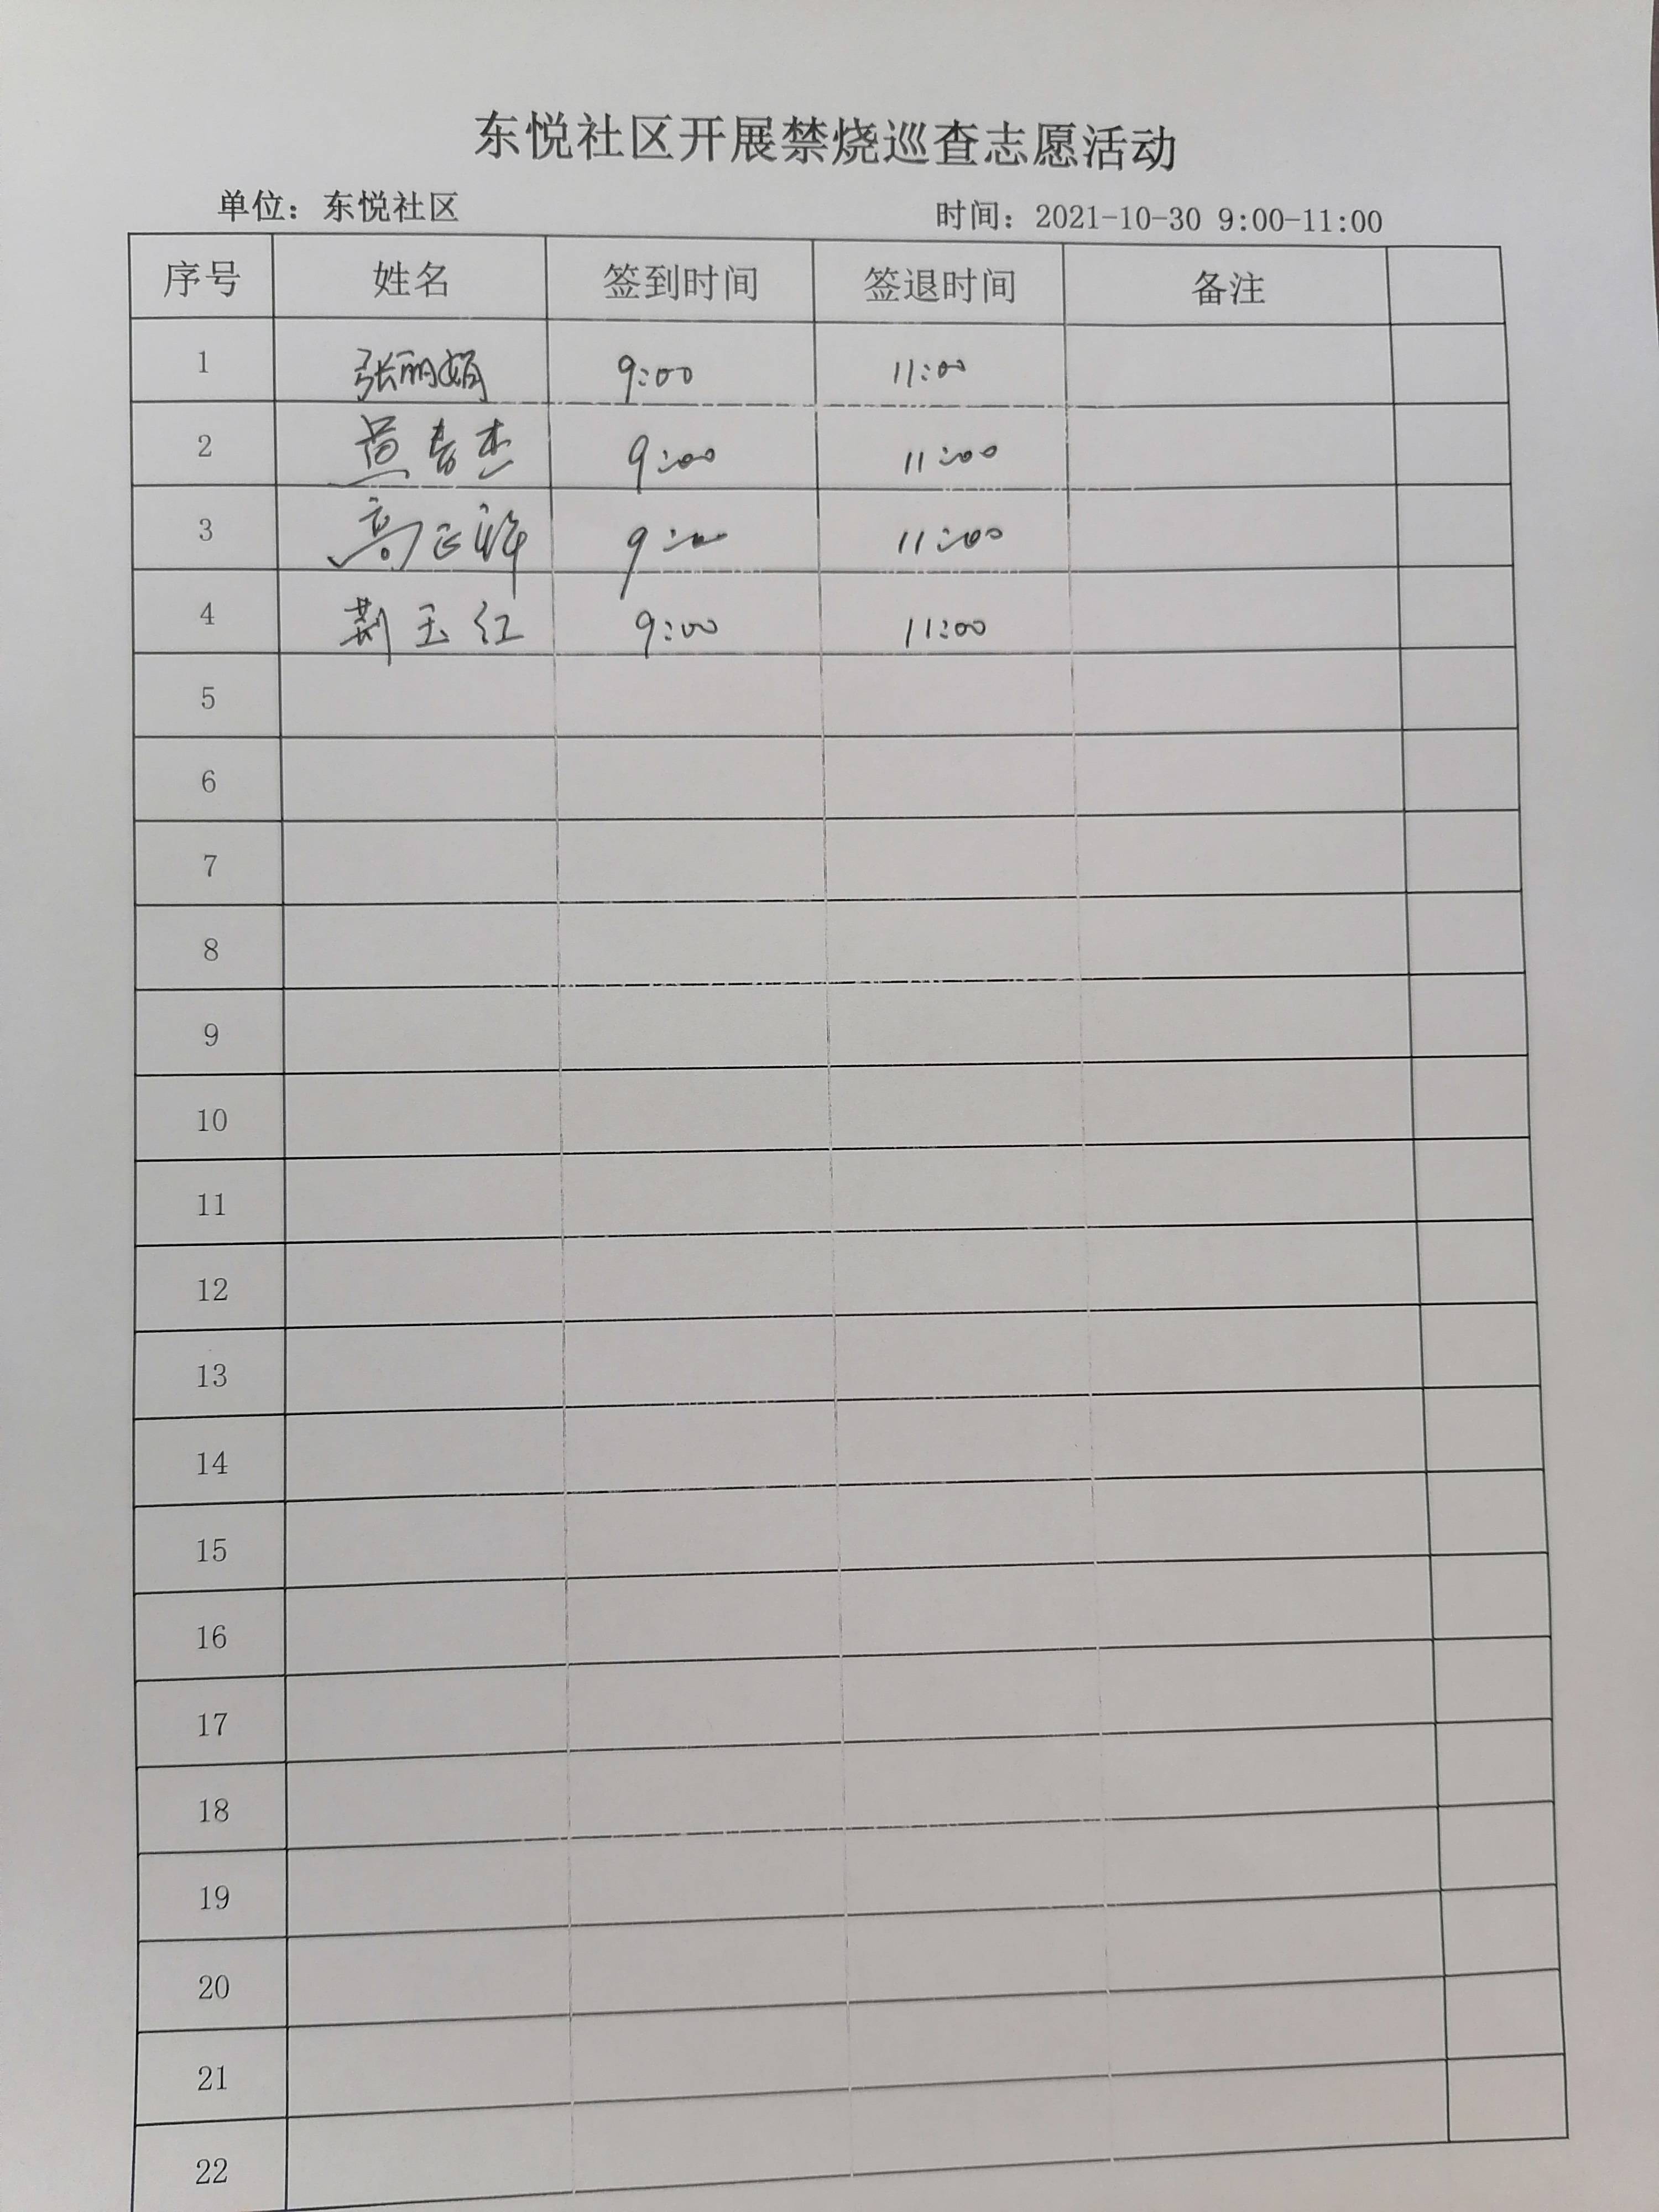 东悦社区开展禁烧巡查志愿活动
单位：东悦社区 时间：2021-10-30 9:00-11:00
序号 姓名 签到时间 签退时间 备注
1 张丽娟 9:00 11:00
2 9:00 11:00
3 高 9:00 11:00
4 荆玉红 9:00 11:00
5
6
7
8
9
10
11
12
13
14
15
16
17
18
19
20
21
22